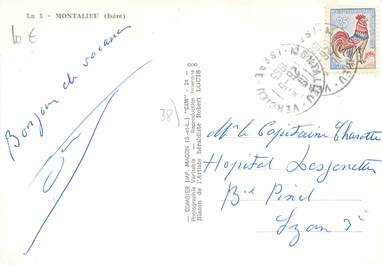 La 3 - MONTALIEU (Isère)
10 €
Bonjour de vacances
38)
COMBIER IMP. MACON (S.-et-L.) "CIM"
Photographie Véritable - Reproduction Interdite
Blason de l'Artiste héraldiste Robert LOUIS
0,25
MONTALIEU-VERCIEU
ISERE
Mr le Capitaine
Hopital Desgenettes
Bd Pinel
Lyon 3e